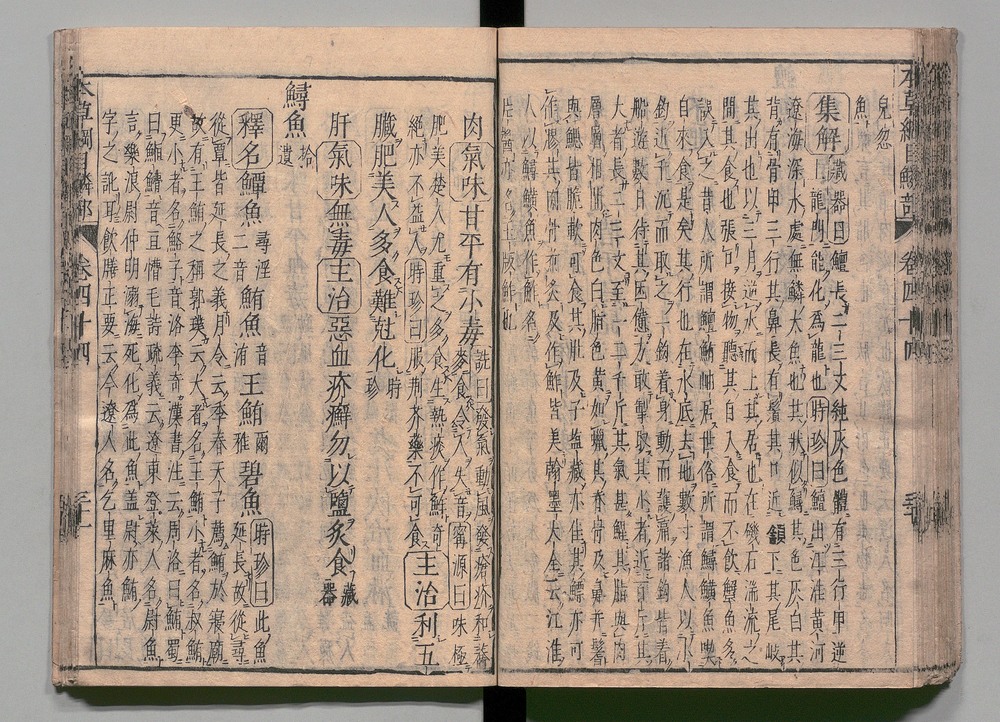 本草綱目鱗部 卷四十四
兒忽
魚
集解藏器曰鱣長二三丈純灰色體有三行甲逆
上龍門能化爲龍也時珍曰鱣出江淮黃河
遼海深水處無鱗大魚也其狀似鱘其色灰白其
背有骨甲三行其鼻長有鬚其口近頷下其尾岐
其出也以三月逆水而上其居也在磯石湍流之
間其食也張口接物聽其自入食而不飲蟹魚多
誤入之昔人所謂鱣鮪岫居世俗所謂鱘鱑魚喫
自來食是矣其行也在水底去地數寸漁人以小
鈎近千沉而取之一鈎着身動而護痛諸鈎皆着
船遊數日待其困憊方敢掣取其小者近百斤其
大者長二三丈至一二千斤其氣甚鯹其脂與肉
層層相間肉色白脂色黃如蠟其脊骨及鼻并鬐
與鰓皆脆軟可食其肚及子鹽藏亦佳其鰾亦可
作膠其肉骨煮炙及作鮓皆美翰墨大全云江淮
人以鱘鱑魚作鮓名
片醬亦名玉版鮓也
肉氣味甘平有小毒詵曰發氣動風發瘡疥和蕎
麥食令人失音寗源曰味極
肥美楚人尤重之多食生熱痰作鮓奇
絕亦不益人時珍曰服荆芥藥不可食主治利五
臟肥美人多食難尅化時
珍
肝氣味無毒主治惡血疥癬勿以鹽炙食藏
器
鱘魚拾
遺
釋名鱏魚尋淫
二音鮪魚音
洧王鮪爾
雅碧魚時珍曰此魚
延長故從尋
從覃皆延長之義月令云季春天子薦鮪於寢廟
故有王鮪之稱郭璞云大者名王鮪小者名叔鮪
更小者名鮥子音洛李奇漢書註云周洛曰鮪蜀
曰䱴鱛音亘懵毛詩疏義云遼東登萊人名尉魚
言樂浪尉仲明溺海死化爲此魚蓋尉亦鮪
字之訛耳飲膳正要云今遼人名乞里麻魚
本草綱目鱗部 卷四十四